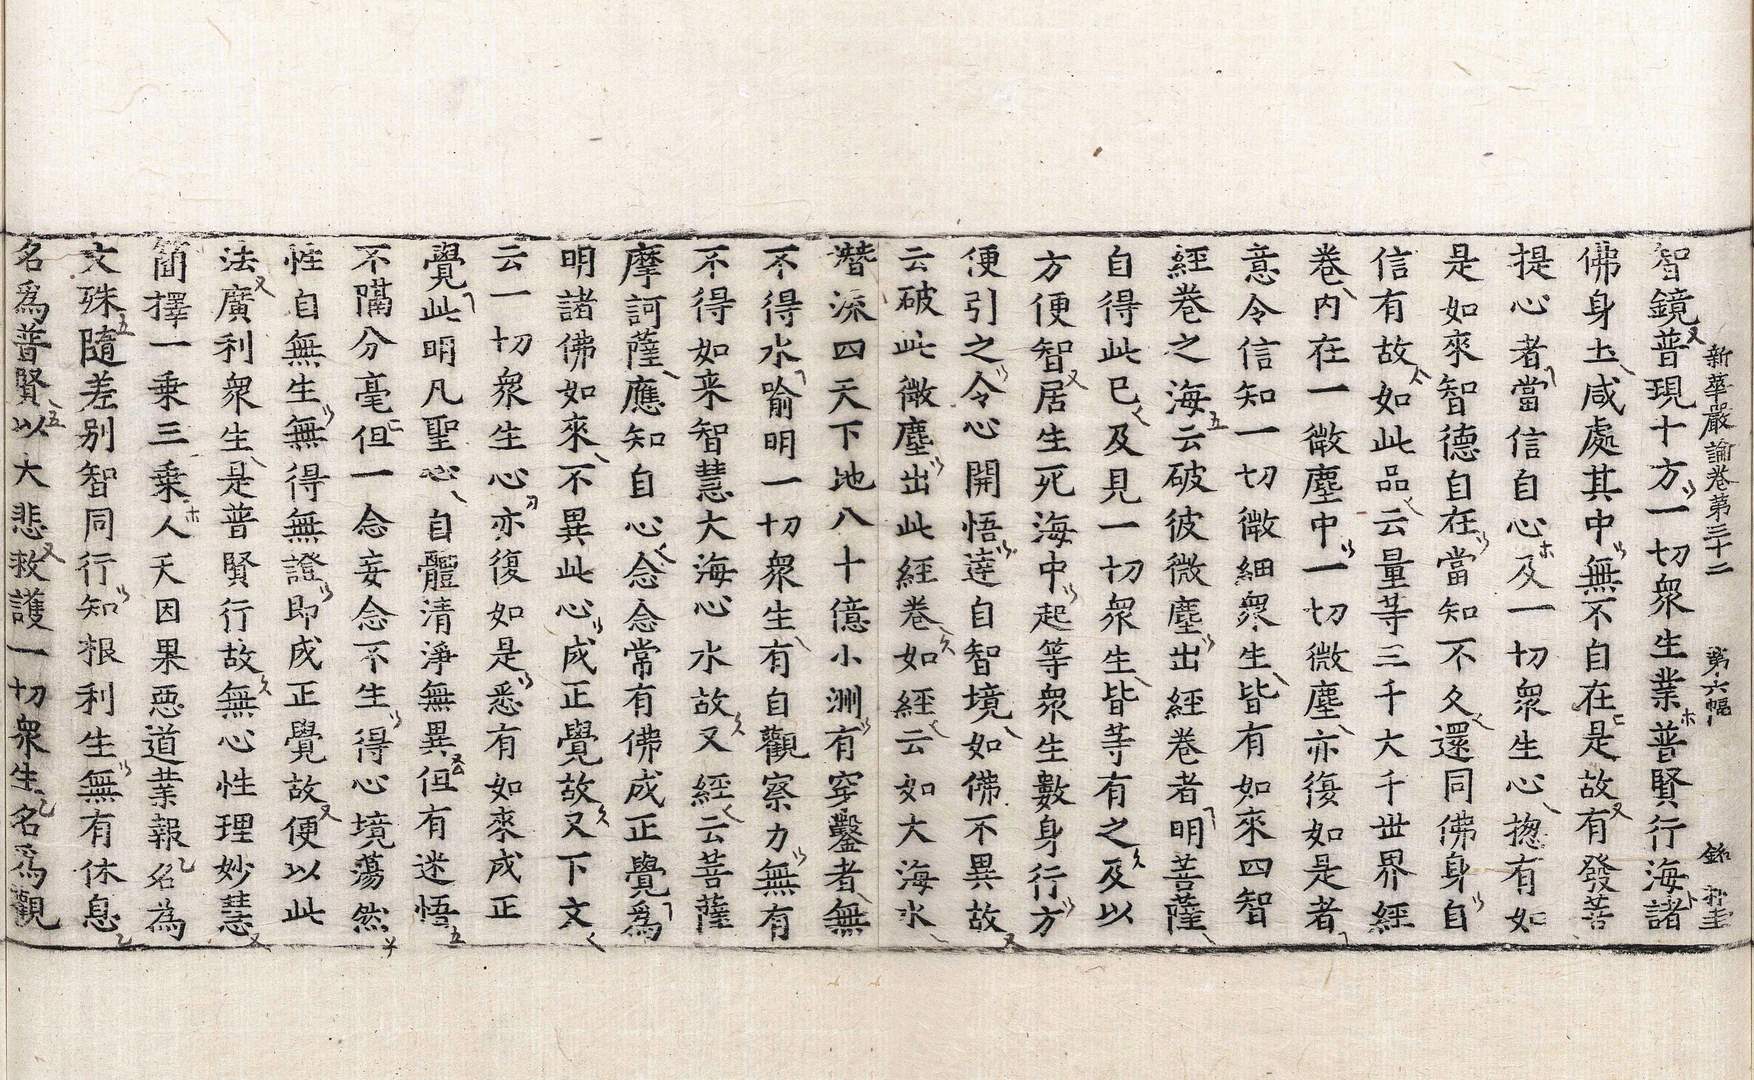 新華嚴論卷第三十二 第六幅
智鏡普現十方一切衆生業普賢行海諸
佛身土咸處其中無不自在是故有發菩
提心者當信自心及一切衆生心揔有如
是如來智德自在當知不久還同佛身自
信有故如此品云量等三千大千世界經
卷內在一微塵中一切微塵亦復如是者
意令信知一切微細衆生皆有如來四智
經卷之海云破彼微塵出經卷者明菩薩
自得此已及見一切衆生皆等有之及以
方便智居生死海中起等衆生數身行方
便引之令心開悟達自智境如佛不異故
云破此微塵出此經卷如經云如大海水
潛流四天下地八十億小洲有穿鑿者無
不得水喻明一切衆生有自觀察力無有
不得如来智慧大海心水故又經云菩薩
摩訶薩應知自心念念常有佛成正覺爲
明諸佛如來不異此心成正覺故又下文
云一切衆生心亦復如是悉有如來成正
覺此明凡聖心自體清淨無異但有迷悟
不隔分毫但一念妄念不生得心境蕩然
性自無生無得無證即成正覺故便以此
法廣利衆生是普賢行故無心性理妙慧
簡擇一乘三乗人天因果惡道業報名為
文殊隨差别智同行知根利生無有休息
名爲普賢以大悲救護一切衆生名爲觀